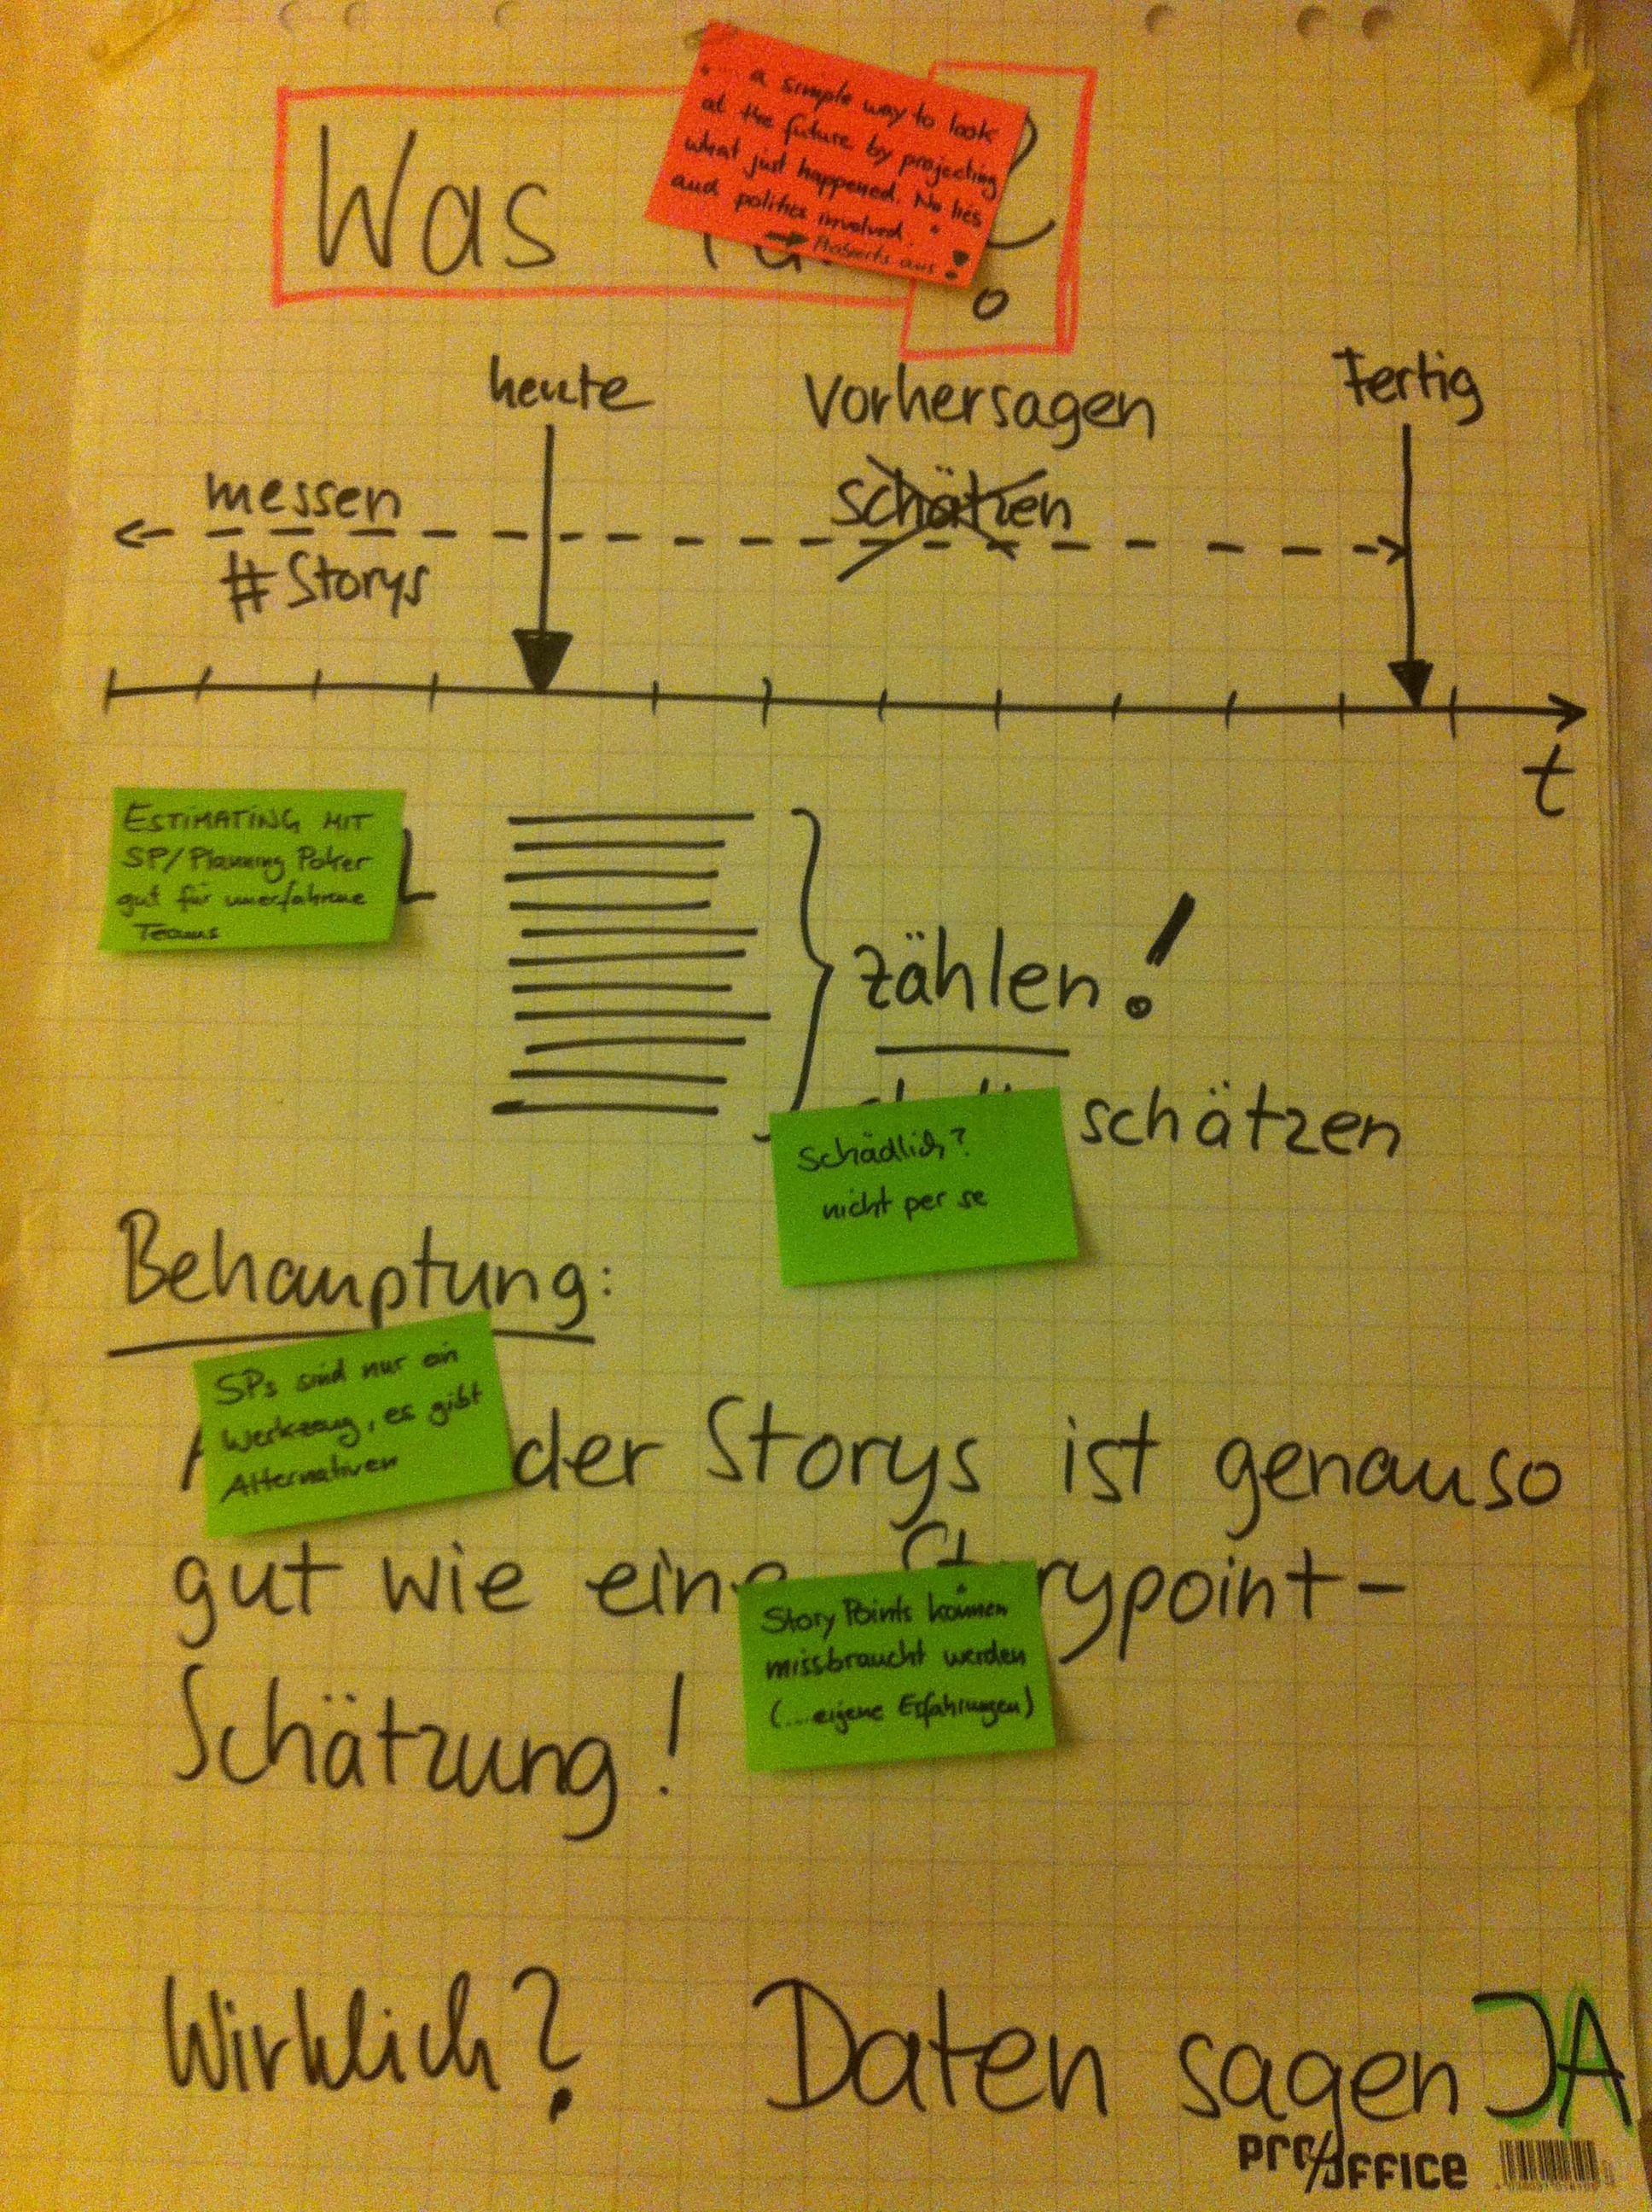 Was
"... a simple way to look
at the future by projecting
what just happened. No lies
and politics involved."
!
?
heute
Vorhersagen
Fertig
messen
schätzen
#Storys
t
ESTIMATING MIT
SP/Planning Poker
gut für unerfahrene
Teams
L
zählen!
schätzen
Schädlich?
nicht per se
Behauptung:
SPs sind nur ein
Werkzeug, es gibt
Alternativen
der Storys ist genauso
gut wie eine Storypoint-
Story Points können
missbraucht werden
(...eigene Erfahrungen)
Schätzung!
Wirklich? Daten sagen JA
pro/OFFICE